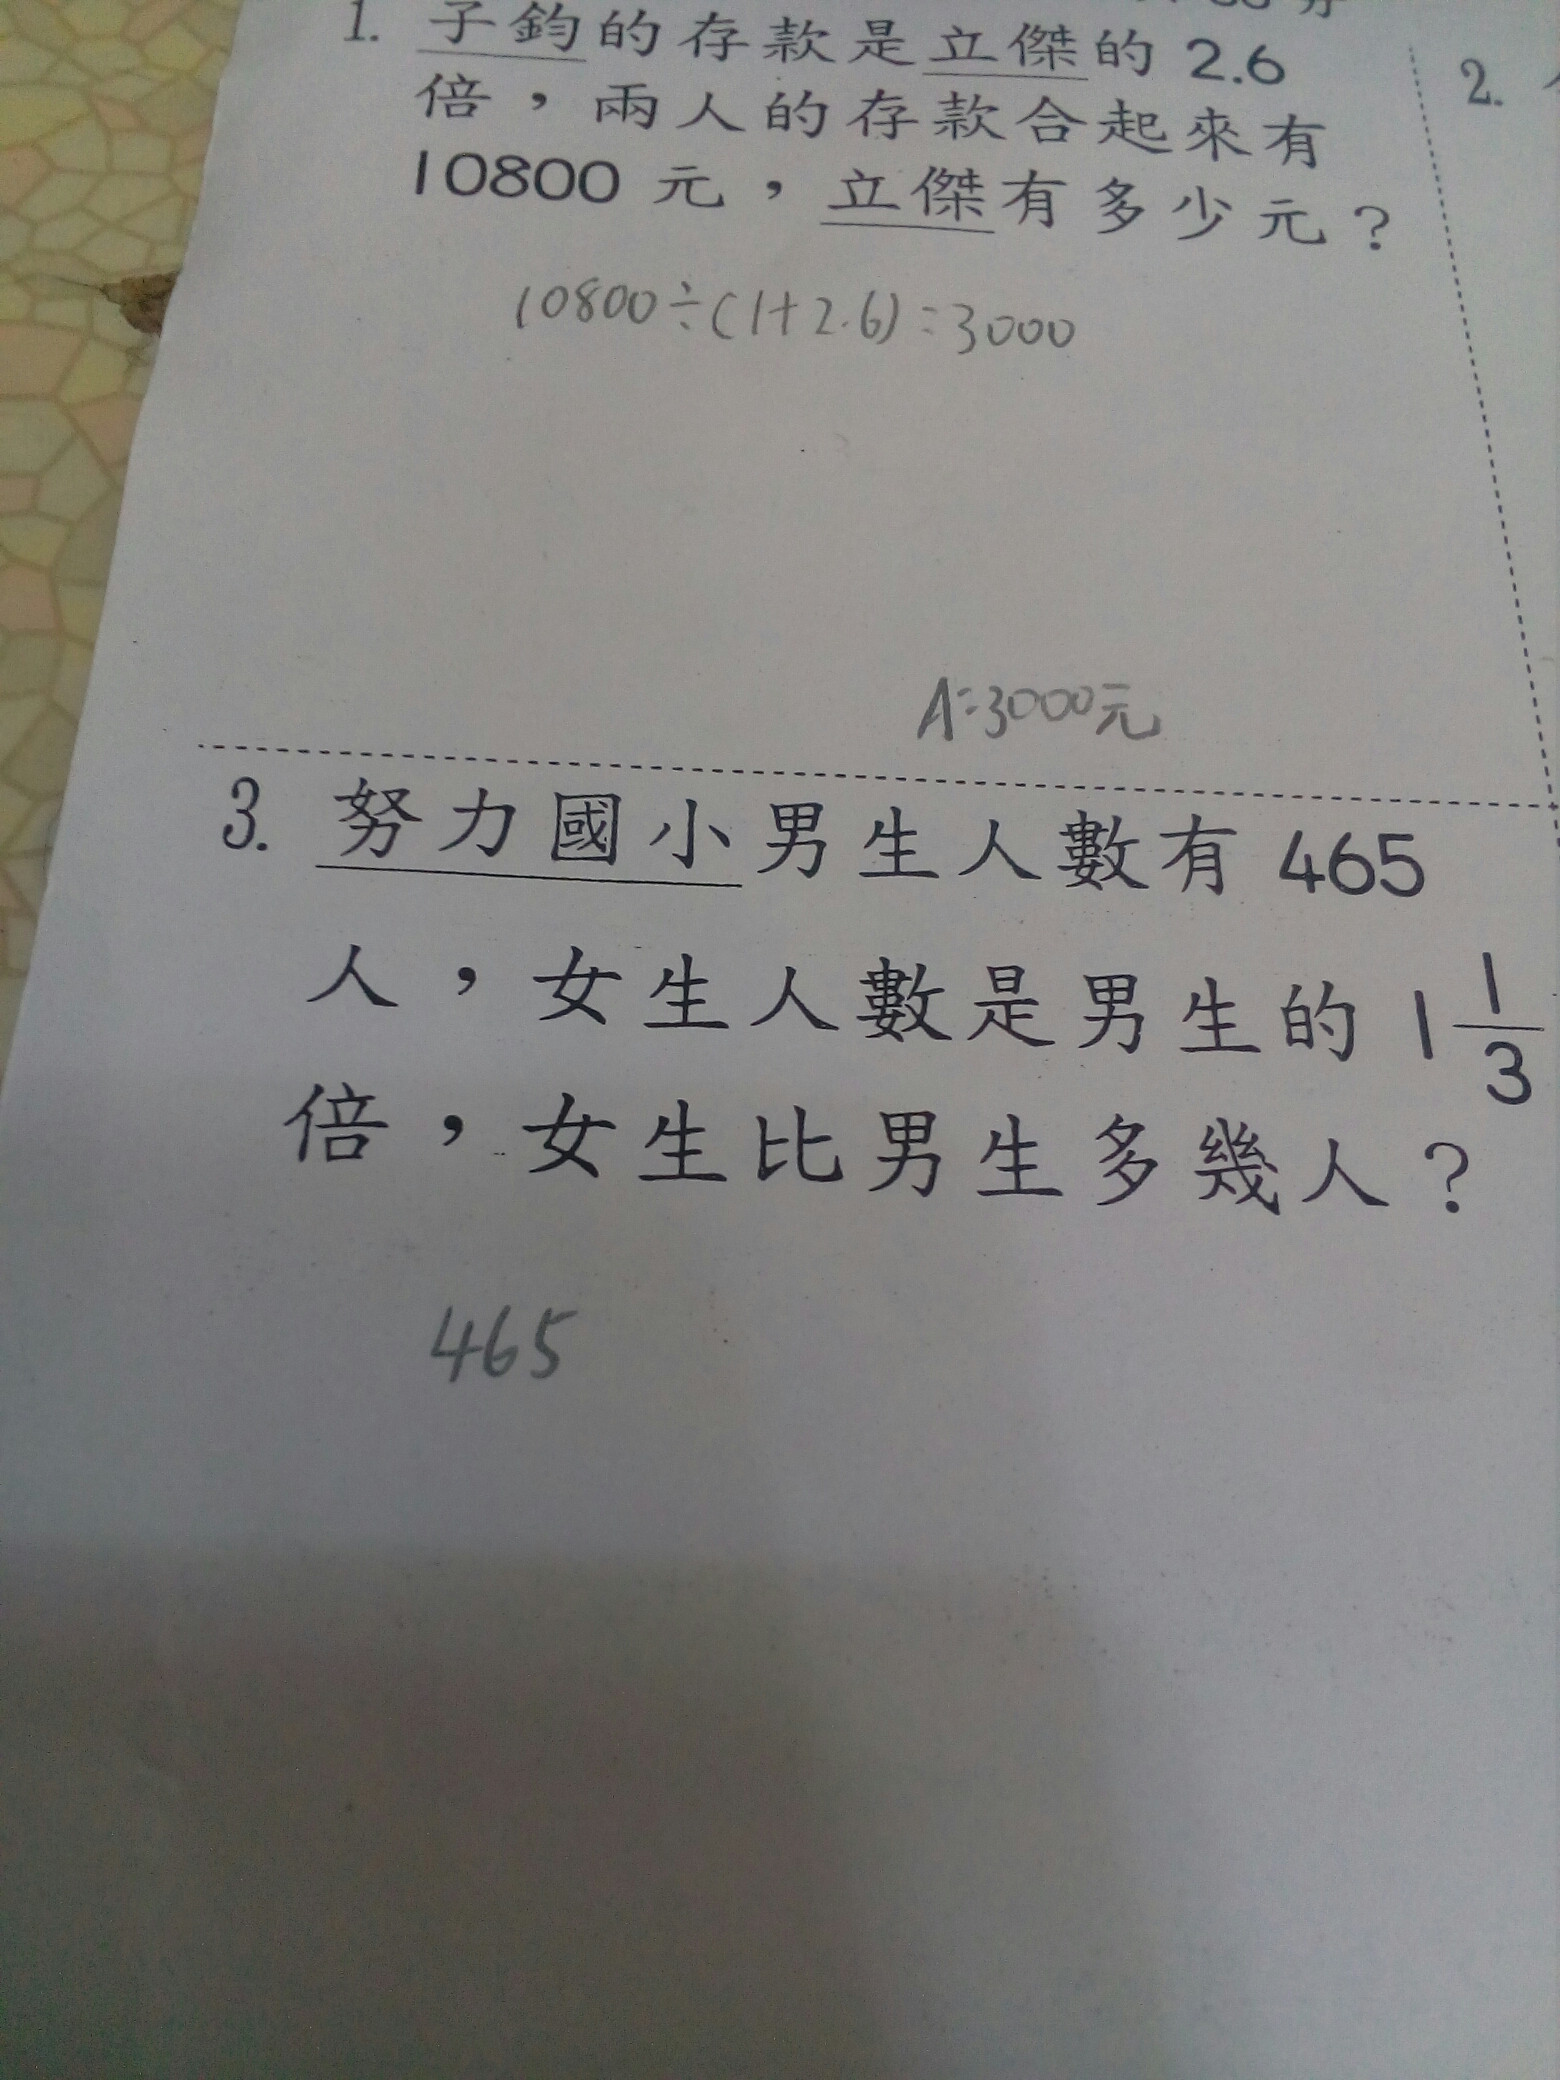 1. 子鈞的存款是立傑的 2.6
倍，兩人的存款合起來有
10800 元，立傑有多少元？
10800÷(1+2.6)=3000
A:3000元
2.
3. 努力國小男生人數有 465
人，女生人數是男生的 1 1/3
倍，女生比男生多幾人？
465